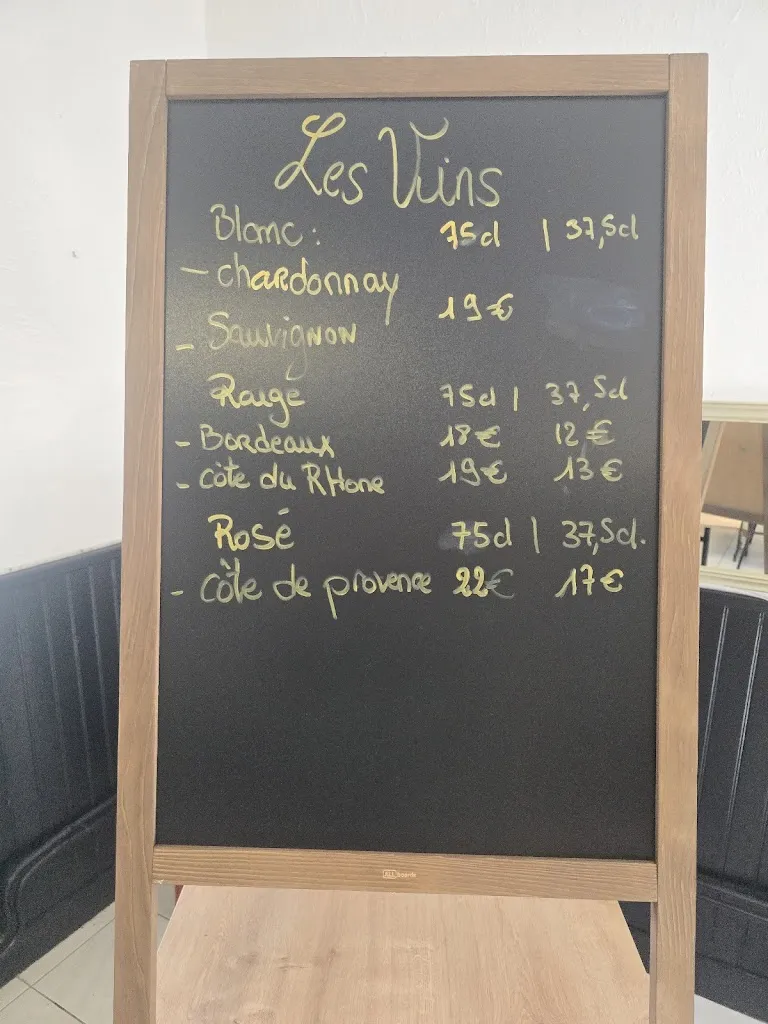 Les Vins
Blanc : 75cl | 37,5cl
- chardonnay
19€
- Sauvignon
Rouge 75cl | 37,5cl
- Bordeaux 18€ 12€
- côte du RHone 19€ 13€
Rosé 75cl | 37,5cl.
- côte de provence 22€ 17€
ALLboards